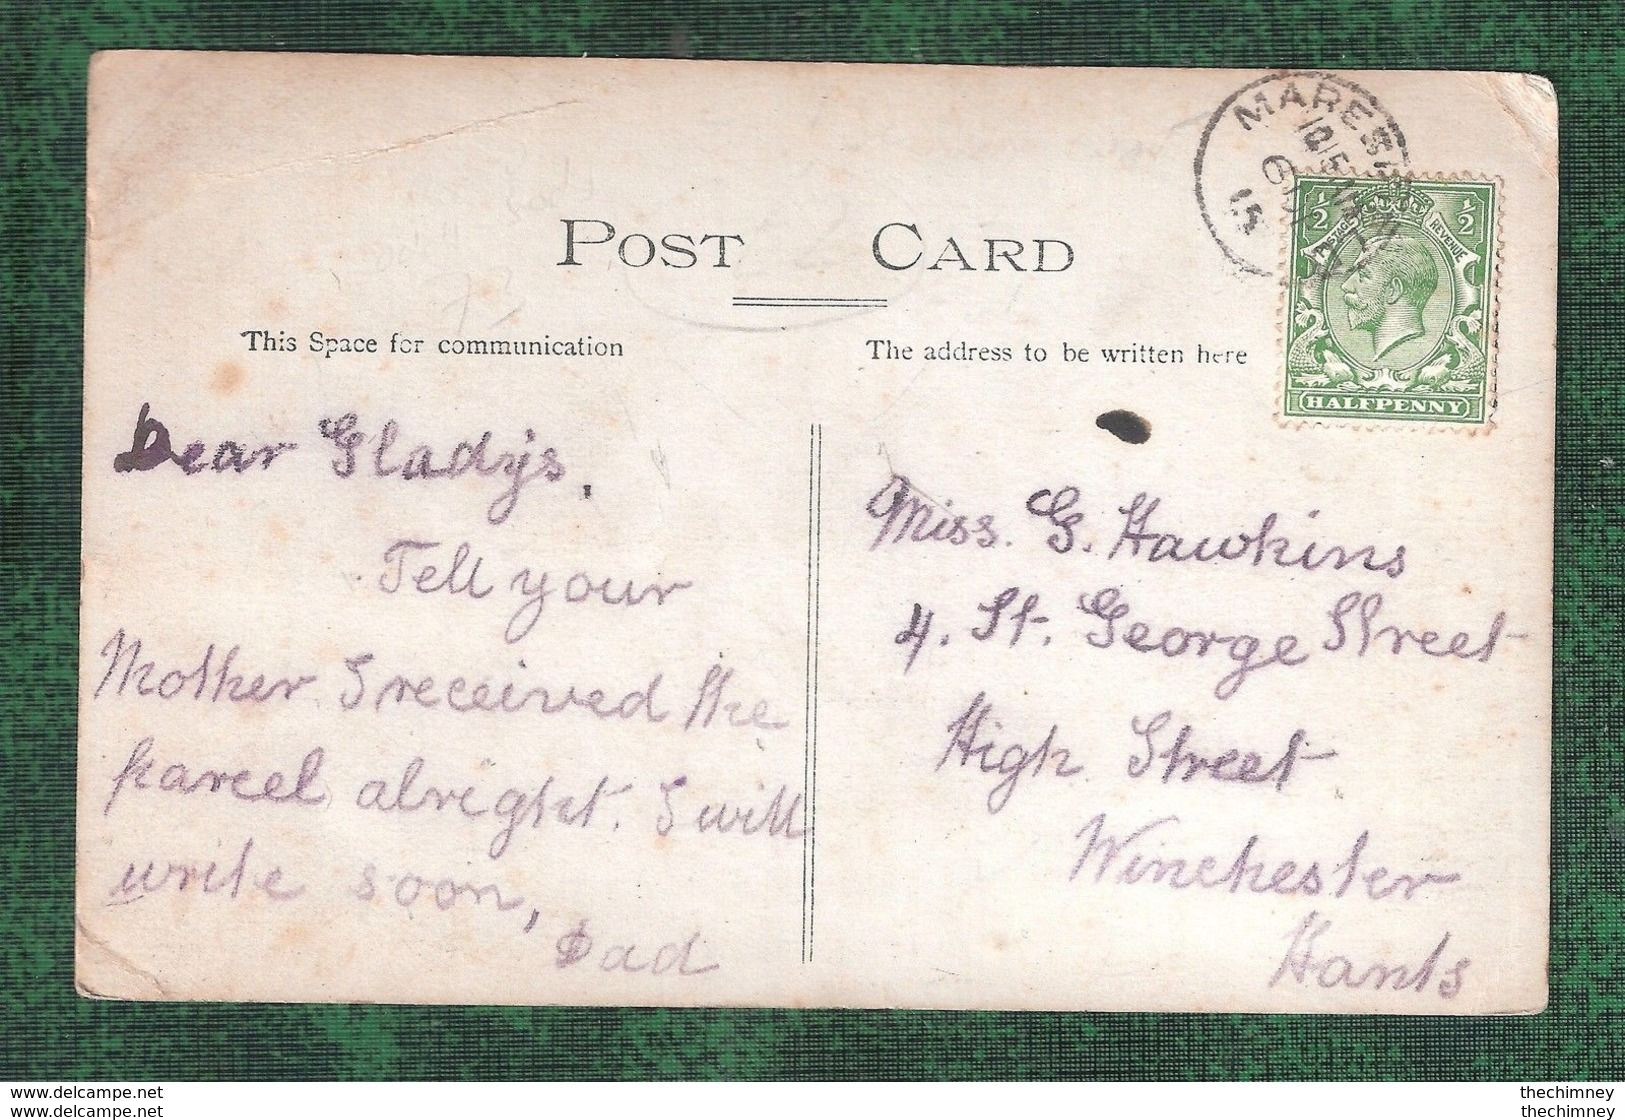 POST CARD
This Space for communication
The address to be written here
Dear Gladys,
Tell your
Mother I received the
parcel alright. I will
write soon,
Dad
Miss. G. Hawkins
4. St. George Street
High Street
Winchester
Hants
½ ½
POSTAGE REVENUE
HALFPENNY
15
delcampe.net
delcampe.net
thechimney
thechimney